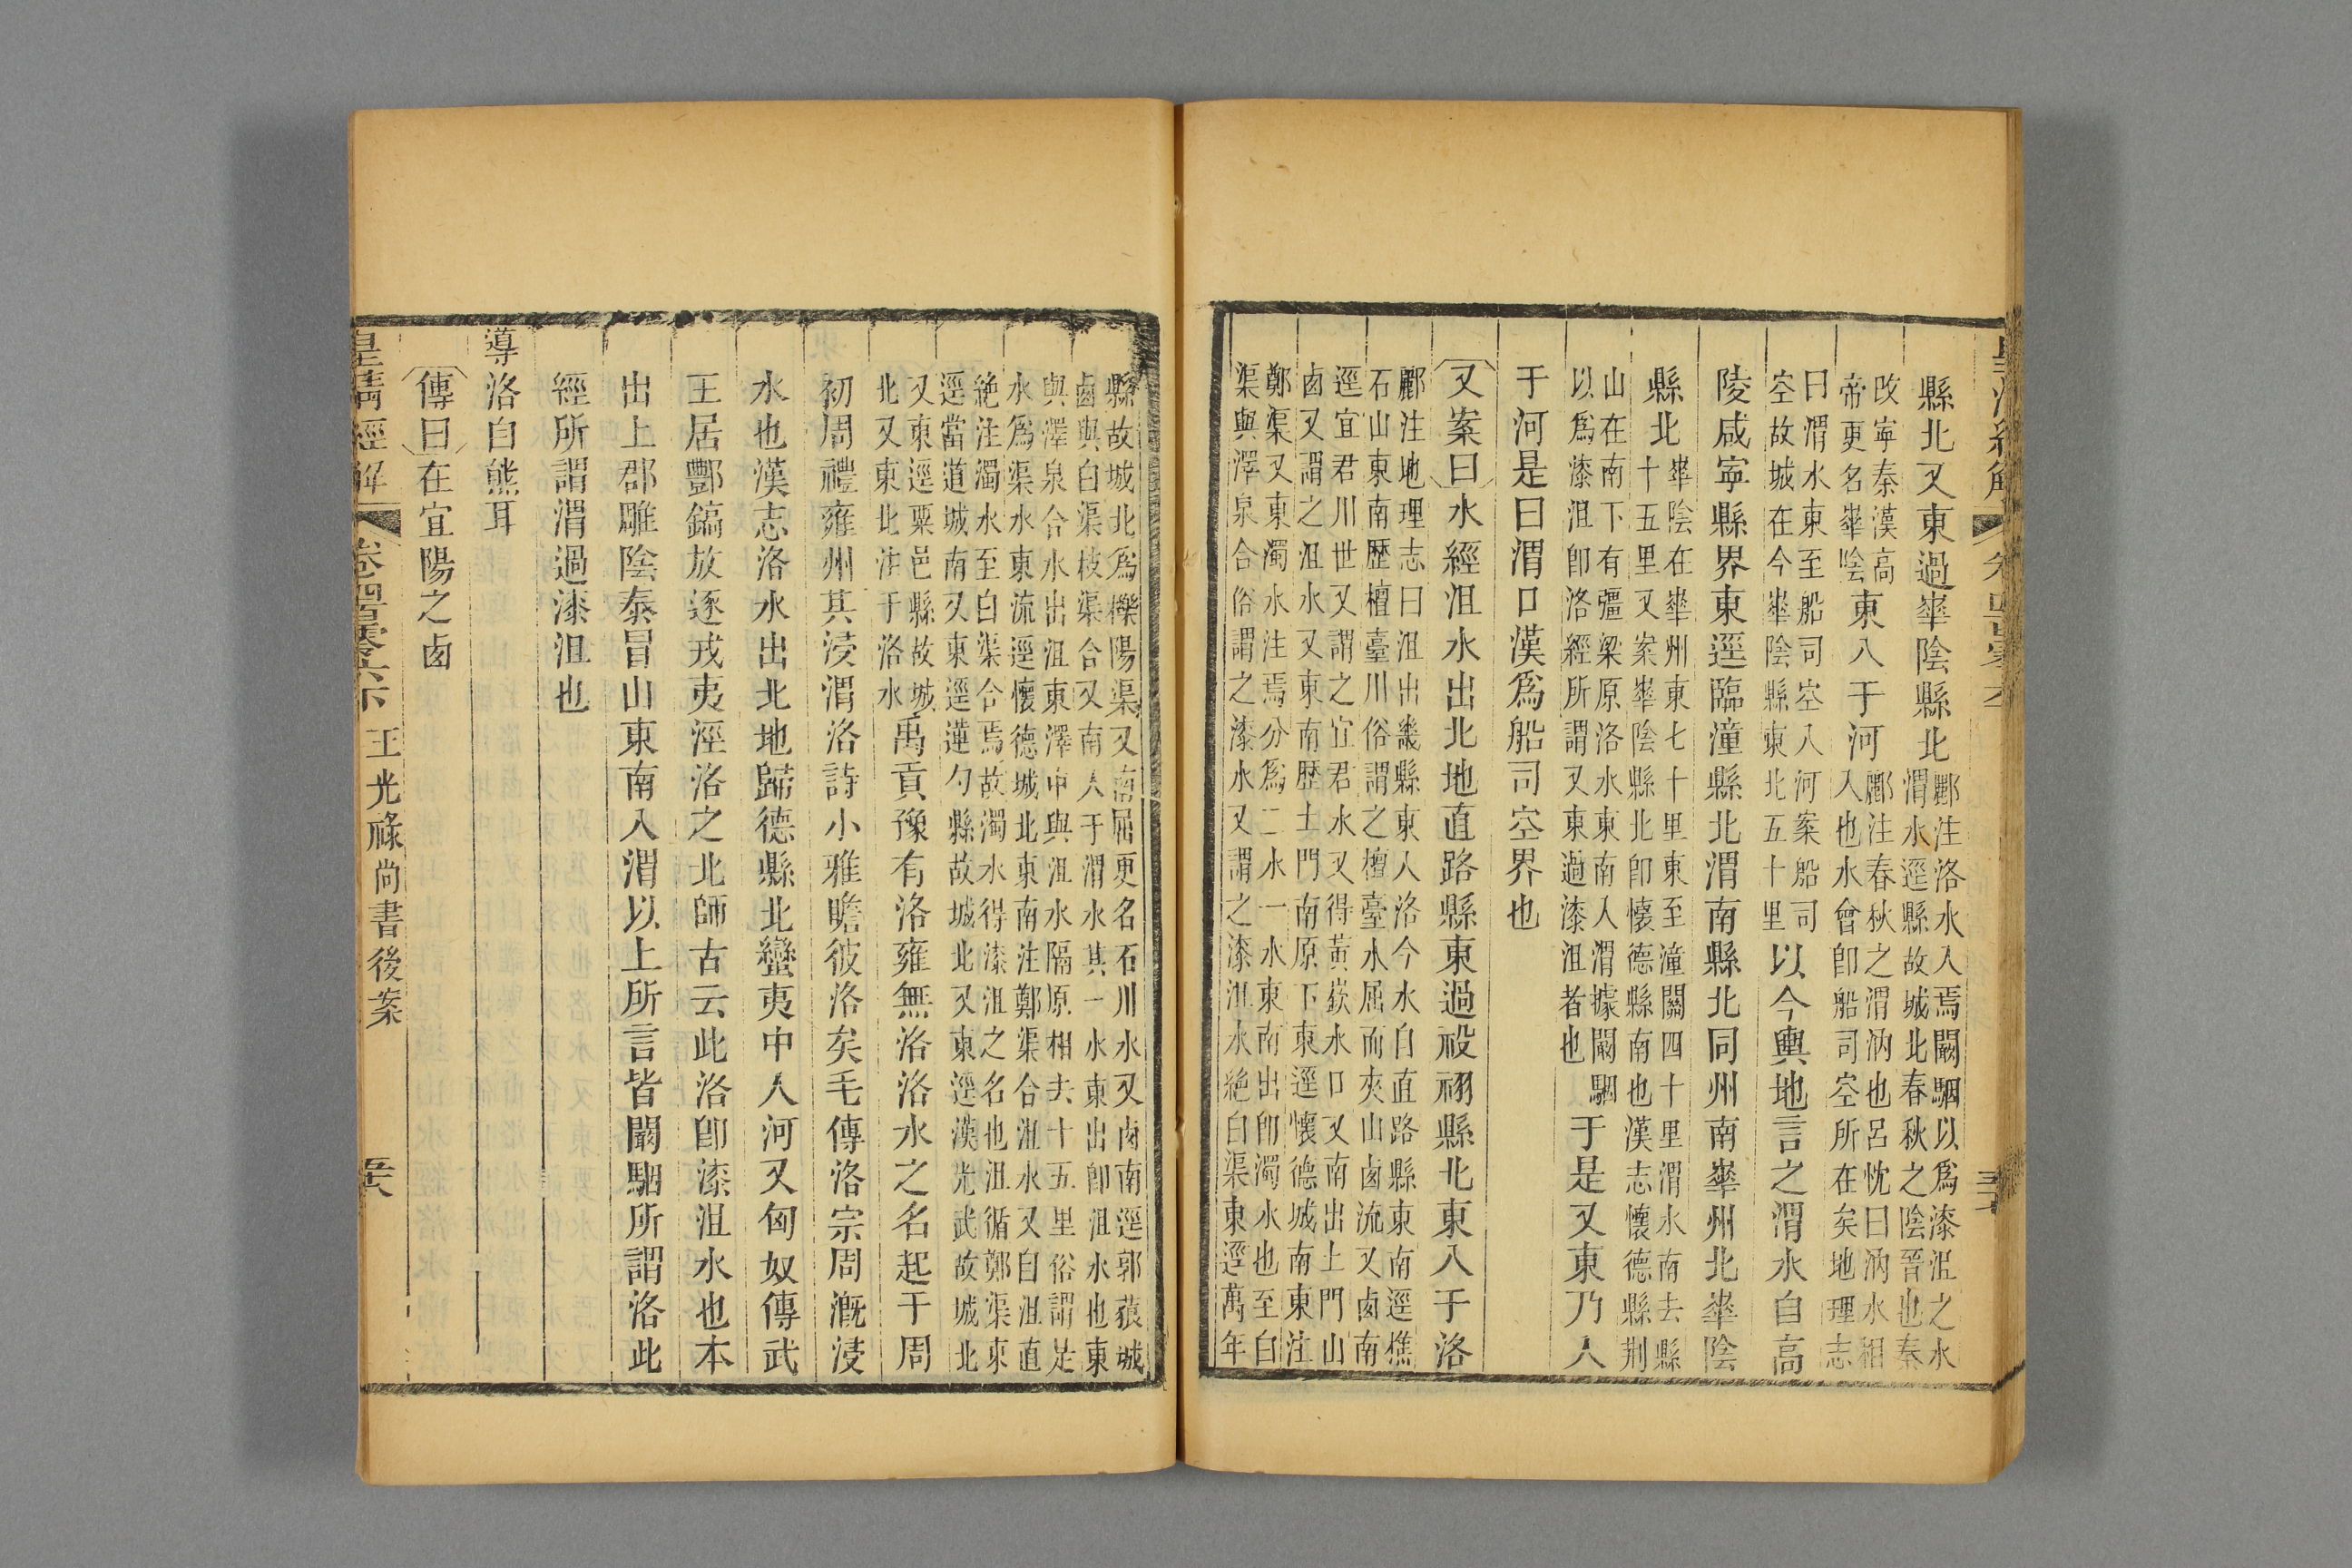 縣北又東過華陰縣北酈注洛水入焉闞駰以爲漆沮之水
渭水逕縣故城北春秋之陰晉也秦
改寧秦漢高
帝更名華陰東入于河酈注春秋之渭汭也呂忱曰汭水相
入也水會卽船司空所在矣地理志
曰渭水東至船司空入河案船司
空故城在今華陰縣東北五十里以今輿地言之渭水自高
陵咸寧縣界東逕臨潼縣北渭南縣北同州南華州北華陰
縣北華陰在華州東七十里東至潼關四十里渭水南去縣
十五里又案華陰縣北卽懷德縣南也漢志懷德縣荆
山在南下有彊梁原洛水東南入渭據闞駰
以爲漆沮卽洛經所謂又東過漆沮者也于是又東乃入
于河是曰渭口漢爲船司空界也
又案曰水經沮水出北地直路縣東過祋祤縣北東入于洛
酈注地理志曰沮出畿縣東入洛今水自直路縣東南逕樵
石山東南歷檀臺川俗謂之檀臺水屈而夾山鹵流又鹵南
逕宜君川世又謂之宜君水又得黃嶔水口又南出土門山
鹵又謂之沮水又東南歷土門南原下東逕懷德城南東注
鄭渠又東濁水注焉分爲二水一水東南出卽濁水也至白
渠與澤泉合俗謂之漆水又謂之漆沮水絶白渠東逕萬年
縣故城北爲櫟陽渠又南屈更名石川水又鹵南逕郭蓑城
鹵與白渠枝渠合又南入于渭水其一水東出卽沮水也東
與澤泉合水出沮東澤中與沮水隔原相去十五里俗謂是
水爲渠水東流逕懷德城北東南注鄭渠合沮水又自沮直
絶注濁水至白渠合焉故濁水得漆沮之名也沮循鄭渠東
逕當道城南又東逕蓮勺縣故城北又東逕漢光武故城北
又東逕粟邑縣故城
北又東北注于洛水禹貢豫有洛雍無洛洛水之名起于周
初周禮雍州其浸渭洛詩小雅瞻彼洛矣毛傳洛宗周漑浸
水也漢志洛水出北地歸德縣北蠻夷中入河又匈奴傳武
王居酆鎬放逐戎夷涇洛之北師古云此洛卽漆沮水也本
出上郡雕陰泰冒山東南入渭以上所言皆闞駰所謂洛此
經所謂渭過漆沮也
導洛自熊耳
傳曰在宜陽之鹵
皇清經解 卷四百零六下 王光祿尚書後案